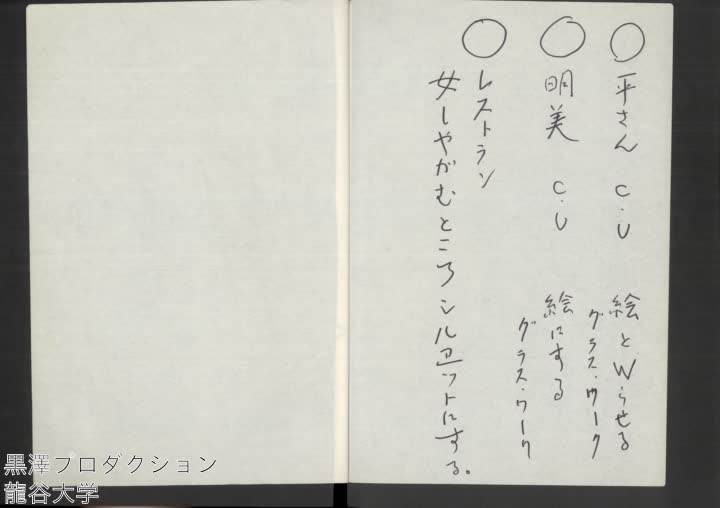 ○ 平さん C.U 絵とWらせる
グラス・ワーク
○ 明美 C.U 絵にする
グラス・ワーク
○ レストラン
女しゃがむところシルエットにする。
黒澤プロダクション
龍谷大学